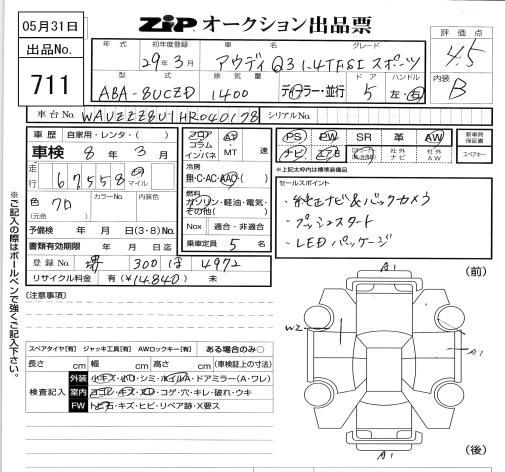 05月31日
出品No.
711
ZIP オークション出品票
評価点
4.5
内装
B
年式 初年度登録 車名 グレード
29年3月 アウディ Q3 1.4TFSI スポーツ
型式 排気量 ドア ハンドル
ABA-8UCZD 1400 ディーラー・並行 5 左・右
車台No. WAUZZZ8U1HR040178 シリアルNo.
車歴 自家用・レンタ・( )
車検 8年3月
走行 67558 km マイル
色 クロ (元色) カラーNo. 内装色
予備検 年 月 日(3・8)No.
書類有効期限 年 月 日迄
登録No. 堺 300 ほ 4972
リサイクル料金 有(¥14,840) 未
フロア コラム インパネ AT ・ MT 速
冷房
無・C・AC・AAC
燃料
ガソリン・軽油・電気・その他( )
Nox 適合・非適合
乗車定員 5 名
PS PW SR 革 AW
ナビ エアB 社外ナビ 社外AW
新車時保証書
スペアキー
※上記太枠内は標準装備品
セールスポイント
・純正ナビ&バックカメラ
・プッシュスタート
・LEDパッケージ
※ご記入の際はボールペンで強くご記入下さい。
[注意事項]
スペアタイヤ[有] ジャッキ工具[有] AWロックキー[有] ある場合のみ○
長さ cm 幅 cm 高さ cm (車検証上の寸法)
検査記入
外装 小キズ・小凹・シミ・ホイルA・ドアミラー(A・ワレ)
室内 ヨゴレ・キズ・スレ・コゲ・穴・キレ・破れ・ウキ
FW トビ石・キズ・ヒビ・リペア跡・X要ス
(前)
A1
W2
A1
A1
(後)